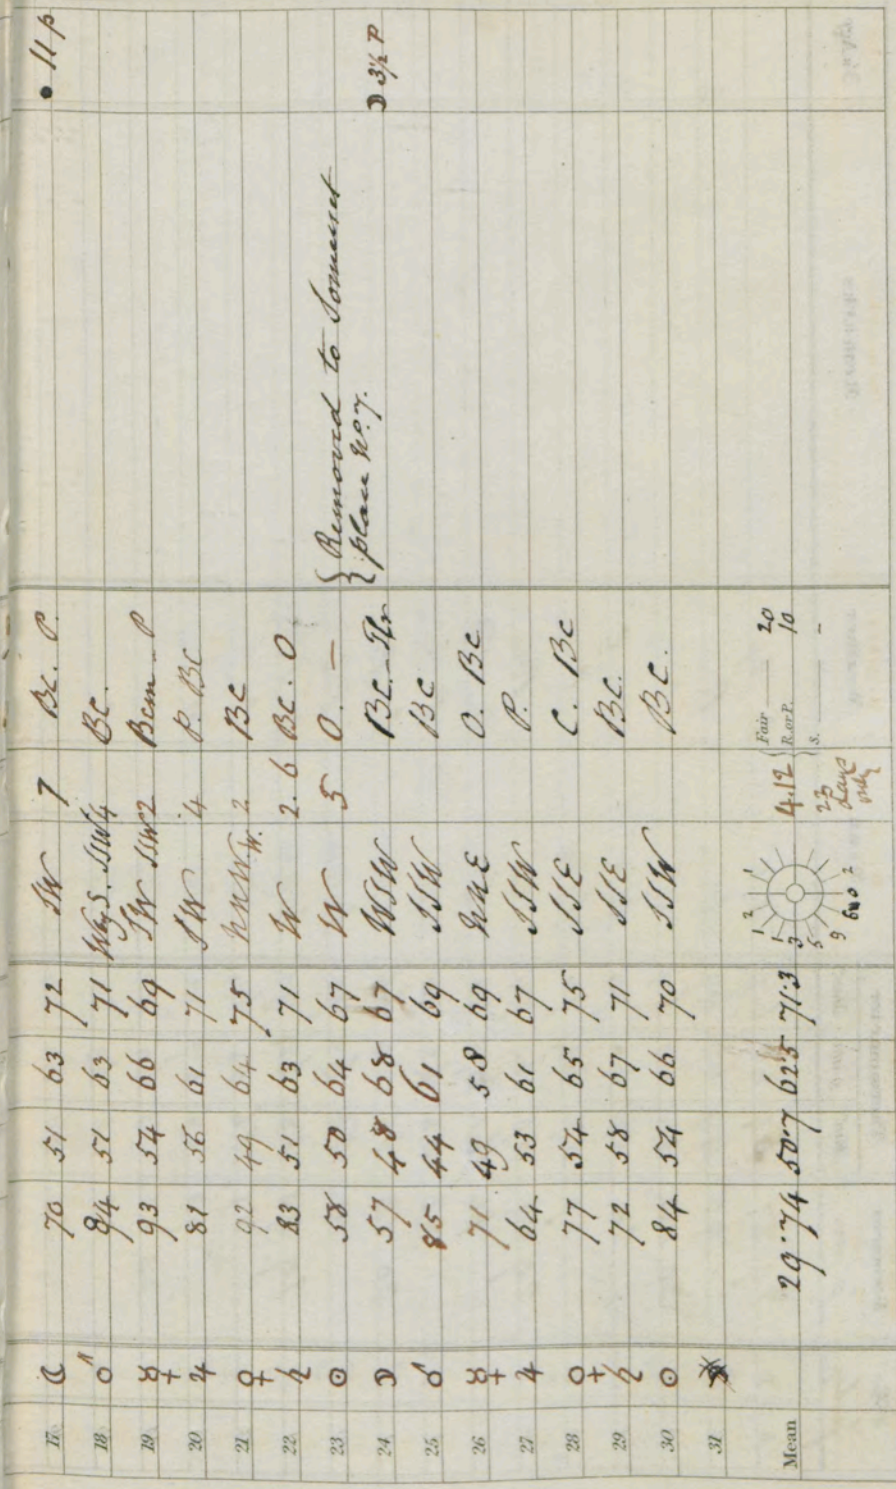 17 ☾ 70 51 63 72 SW 7 Bc. P. ● 11 p
18 ♂ 84 51 63 71 WbyS. SSW 4 Bc.
19 ☿ 93 54 66 69 SW SSW 2 Bcm - P
20 ♃ 81 56 61 71 SW 4 P. Bc
21 ♀ 92 49 64 75 NNW W. 2 Bc
22 ♄ 83 51 63 71 W 2. 6 Bc. O
23 ☉ 58 50 64 67 W 5 O. — { Removed to Somerset
24 ☽ 57 48 68 67 WSW Bc. - place No. 7. ☽ 3½ P
25 ♂ 85 44 61 69 SSW Bc
26 ☿ 71 49 58 69 NNE O. Bc
27 ♃ 64 53 61 67 SSW P.
28 ♀ 77 54 65 75 SSE C. Bc
29 ♄ 72 58 67 71 SSE Bc.
30 ☉ 84 54 66 70 SSW Bc.
31
Mean 29.74 50.7 62.5 71.3
2 1 1 3 5 9 6 0 2
4.12
23 days only
Fair 20
R. or P. 10
S. -